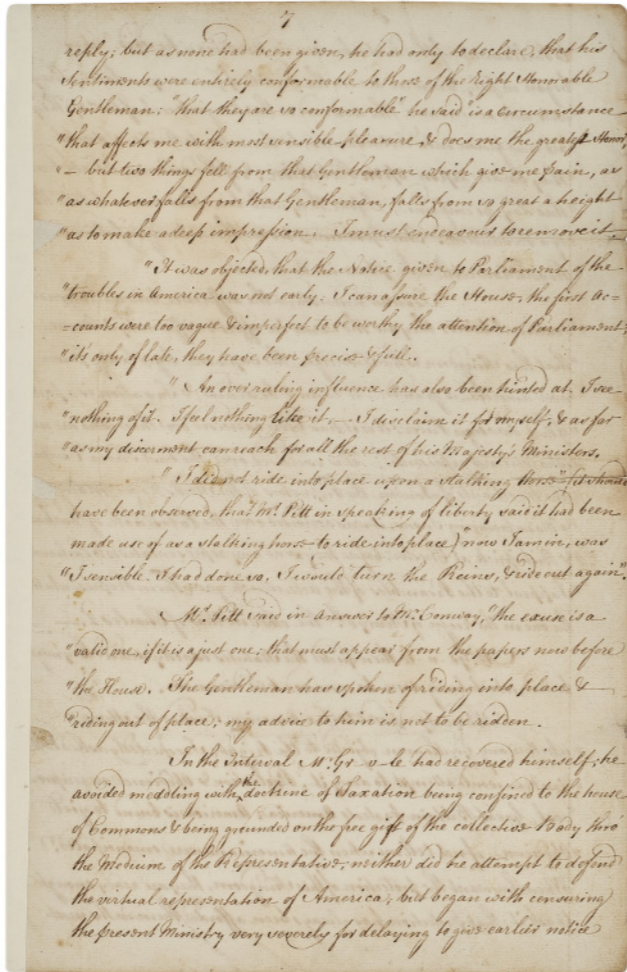 7
reply; but as none had been given, he had only to declare, that his
Sentiments were entirely conformable to those of the Right Honorable
Gentleman: "that they are so conformable" he said "is a circumstance
"that affects me with most sensible pleasure, & does me the greatest Honor,
"— but two things fell from that Gentleman which give me pain, as
"as whatever falls from that Gentleman, falls from so great a height
"as to make a deep impression. I must endeavour to remove it.—
"It was objected, that the Notice given to Parliament of the
"troubles in America was not early. I can assure the House, the first Ac=
=counts were too vague & imperfect to be worthy the attention of Parliament;
"it's only of late, they have been precise & full.
"An over ruling influence has also been hinted at. I see
"nothing of it. I feel nothing like it,— I disclaim it for myself, & as far
"as my discernment can reach for all the rest of his Majesty's Ministers.
"I did not ride into place upon a stalking Horse" (it should
have been observed, that Mr. Pitt in speaking of liberty said it had been
made use of as a stalking horse to ride into place) "now I am in, was
"I sensible I had done so, I would turn the Reins, & ride out again".
Mr. Pitt said in answer to Mr. Conway, "the excuse is a
"valid one, if it is a just one; that must appear from the papers now before
"the House. The Gentleman has spoken of riding into place &
"riding out of place; my advice to him is not to be ridden.
In the Interval Mr. Gr v-le had recovered himself; he
avoided meddling with the doctrine of Taxation being confined to the house
of Commons & being grounded on the free gift of the collective Body thro'
the Medium of the Representative; neither did he attempt to defend
the virtual representation of America; but began with censuring
the present Ministry very severely for delaying to give earlier notice